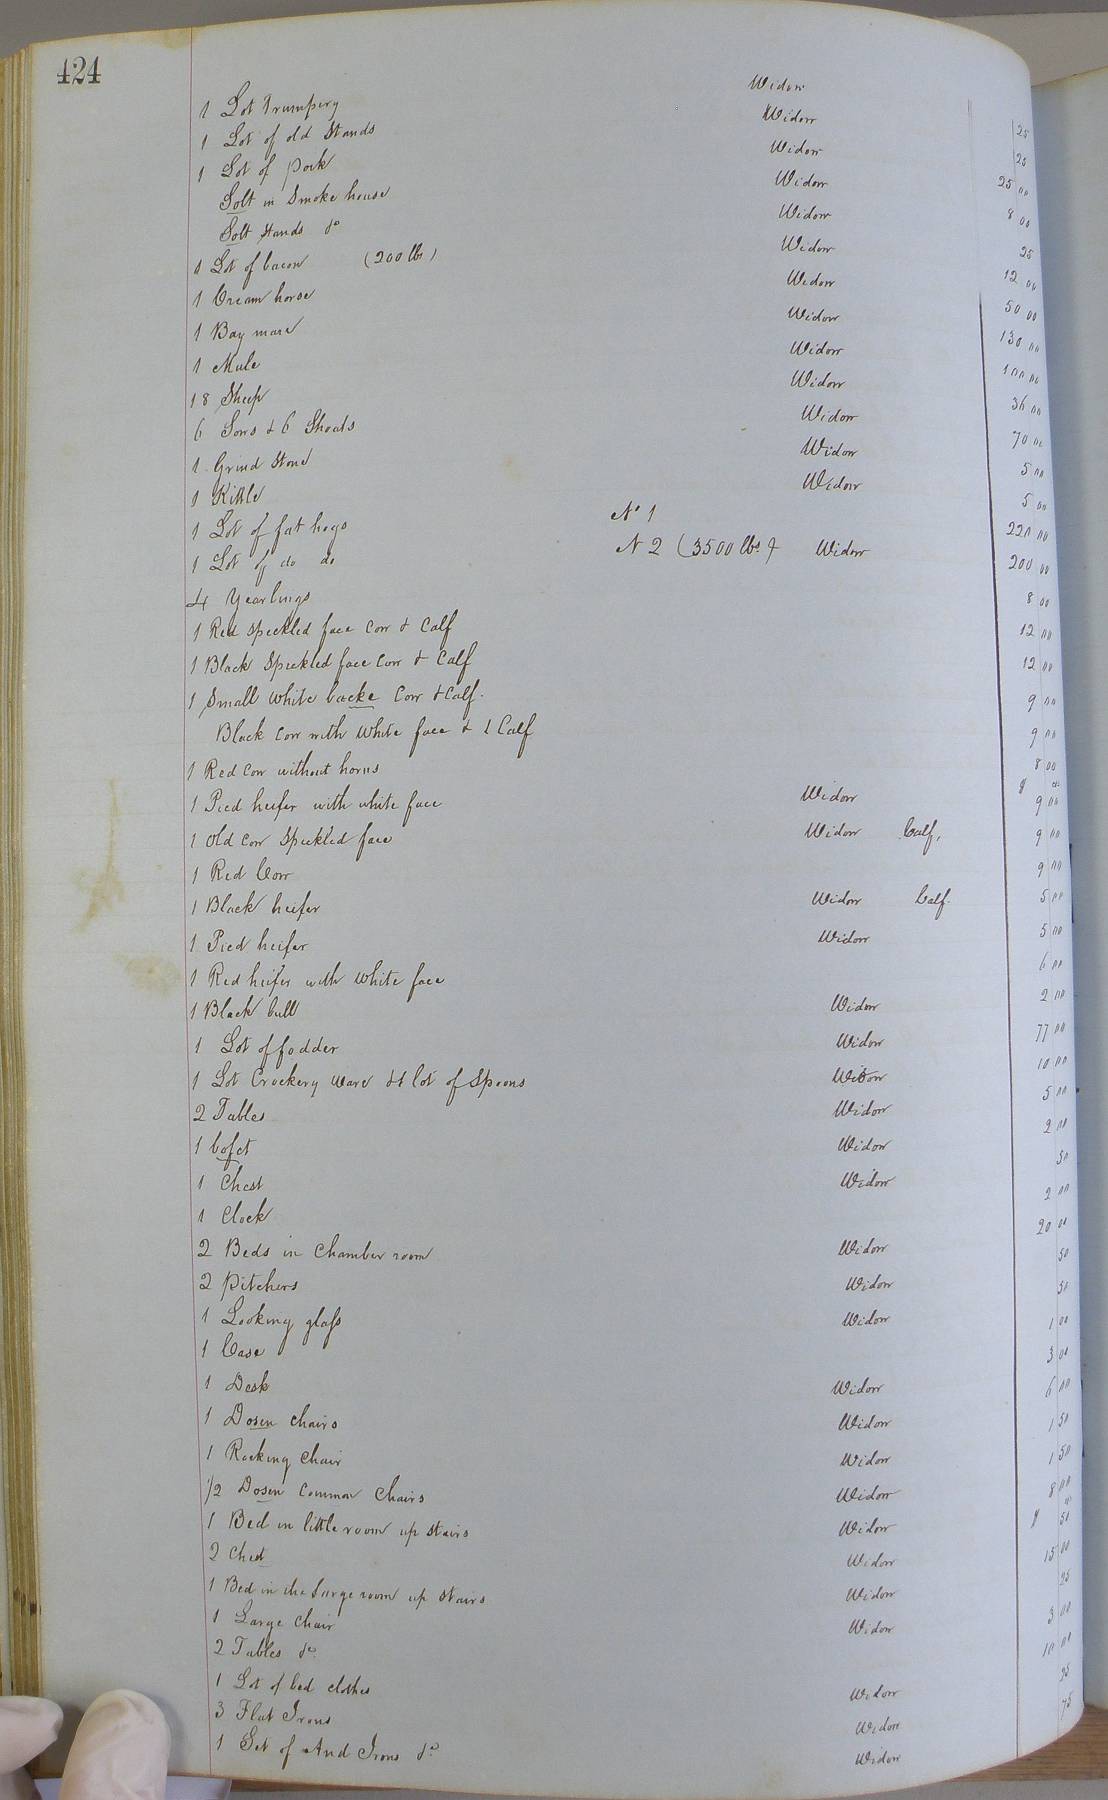 424
1 Lot Trumpery Widow 25
1 Lot of old Stands Widow 25
1 Lot of Pork Widow 25 00
Solt in Smoke house Widow 8 00
Solt Stands do Widow 25
1 Lot of bacon (200 lbs) Widow 12 00
1 Cream horse Widow 50 00
1 Bay mare Widow 130 00
1 Mule Widow 100 00
18 Sheep Widow 36 00
6 Sows & 6 Shoats Widow 70 00
1 Grind Stone Widow 5 00
1 Kittle Widow 5 00
1 Lot of fat hogs No 1 220 00
1 Lot of do do N 2 (3500 lbs) Widow 200 00
4 Yearlings 8 00
1 Red Speckled face Cow & Calf 12 00
1 Black Speckled face Cow & Calf 12 00
1 Small white backe Cow & Calf. 9 00
Black Cow with White face & 1 Calf 9 00
1 Red Cow without horns 8 00
1 Pied heifer with white face Widow 9 00
1 Old Cow Speckled face Widow Calf, 9 00
1 Red Cow 9 00
1 Black heifer Widow Calf. 5 00
1 Pied heifer Widow 5 00
1 Red heifer with White face 6 00
1 Black bull Widow 2 00
1 Lot of fodder Widow 77 00
1 Lot Crockery Ware & 1 lot of Spoons Widow 10 00
2 Tables Widow 5 00
1 Cofet Widow 2 00
1 Chest Widow 50
1 Clock 2 00
2 Beds in Chamber room Widow 20 00
2 Pitchers Widow 50
1 Looking glass Widow 50
1 Case 1 00
1 Desk Widow 3 00
1 Dosen Chairs Widow 6 00
1 Rocking Chair Widow 1 50
1/2 Dosen Common Chairs Widow 1 50
1 Bed in little room up Stairs Widow 8 00
2 Chest Widow 50
1 Bed in the large room up Stairs Widow 15 00
1 Large Chair Widow 25
2 Tables do 3 00
1 Lot of bed clothes Widow 10 00
3 Flat Irons Widow 35
1 Set of And Irons do Widow 75